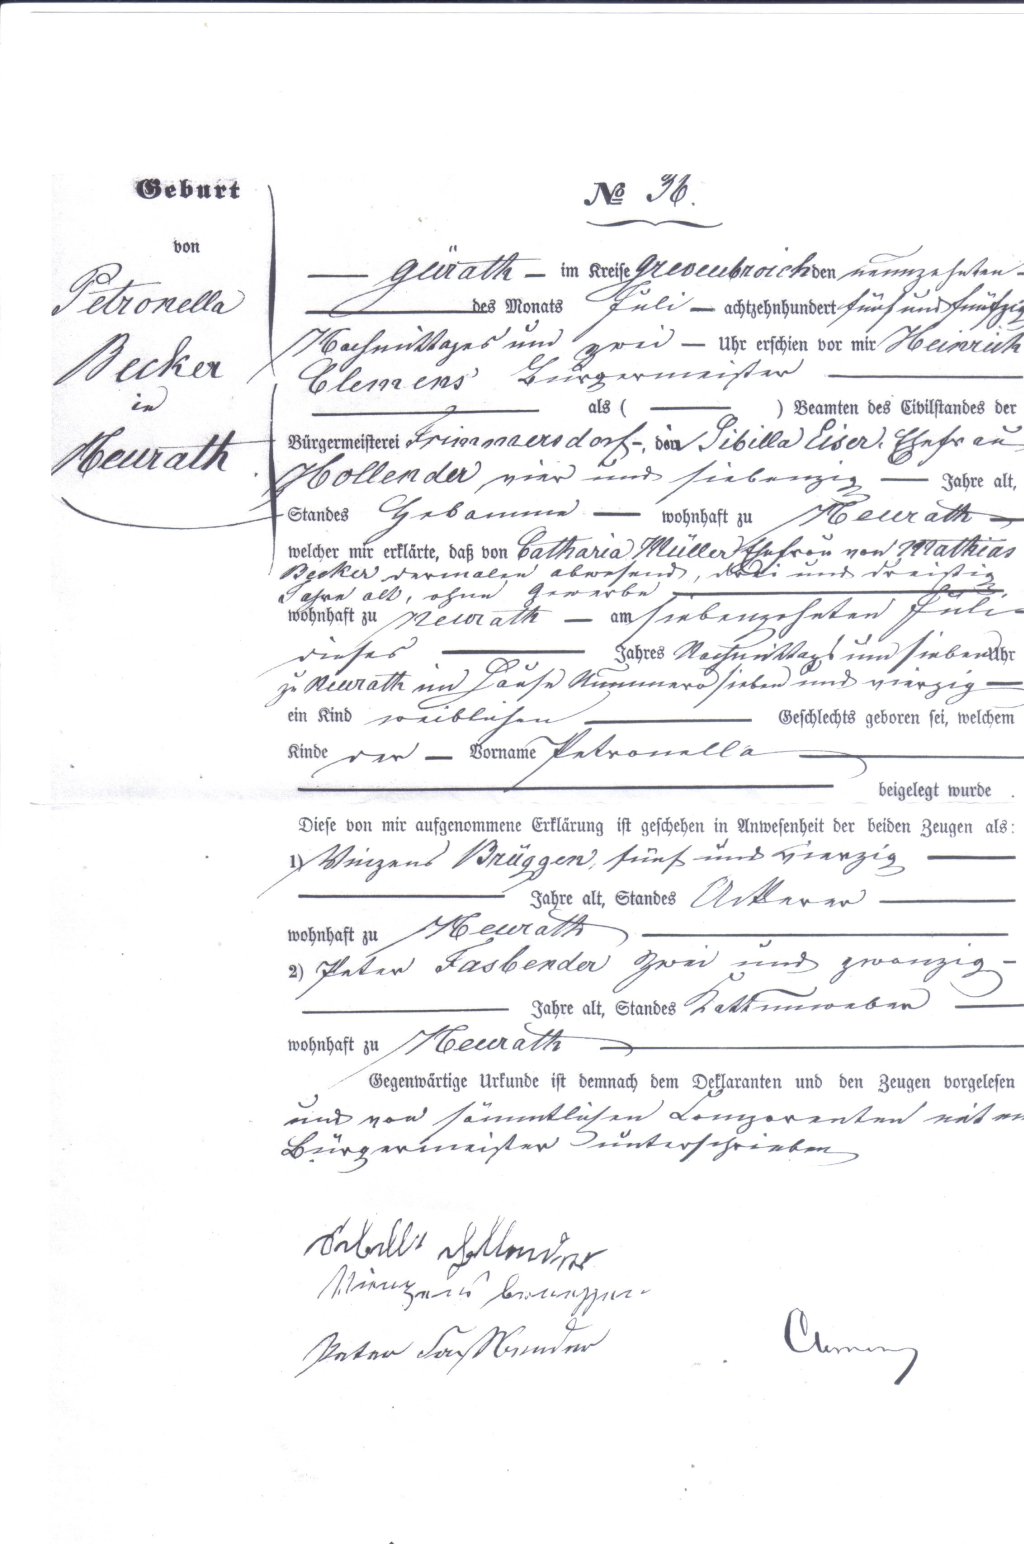 Geburt
von
Petronella
Becker
in
Neurath
No 36.
Gürath — im Kreise Grevenbroich den neunzehnten
des Monats Juli — achtzehnhundert fünf und fünfzig
Nachmittages um zwei — Uhr erschien vor mir Heinrich
Clemens Bürgermeister
als ( — ) Beamten des Civilstandes der
Bürgermeisterei Frimmersdorf, Sibilla Eiser, Ehefrau
Hollender vier und siebenzig — Jahre alt,
Standes Hebamme — wohnhaft zu Neurath —
welcher mir erklärte, daß von Catharia Müller Ehefrau von Mathias
Becker dermalen abwesend, und dreißig
Jahre alt, ohne Gewerbe
wohnhaft zu Neurath — am siebenzehnten Juli
dieses — Jahres Nachmittags um sieben Uhr
zu Neurath im Hause Nummero sieben und vierzig —
ein Kind weiblichen — Geschlechts geboren sei, welchem
Kinde der — Vorname Petronella —
beigelegt wurde .
Diese von mir aufgenommene Erklärung ist geschehen in Anwesenheit der beiden Zeugen als:
1) Vinzens Brüggen, fünf und vierzig —
Jahre alt, Standes Ackerer —
wohnhaft zu Neurath —
2) Peter Fasbender zwei und zwanzig —
Jahre alt, Standes Kattunweber —
wohnhaft zu Neurath —
Gegenwärtige Urkunde ist demnach dem Deklaranten und den Zeugen vorgelesen
und von sämmtlichen Comparenten
Bürgermeister unterschrieben
Sibilla Hollender
Vinzens Brueggen
Peter Fassbender
Clemens